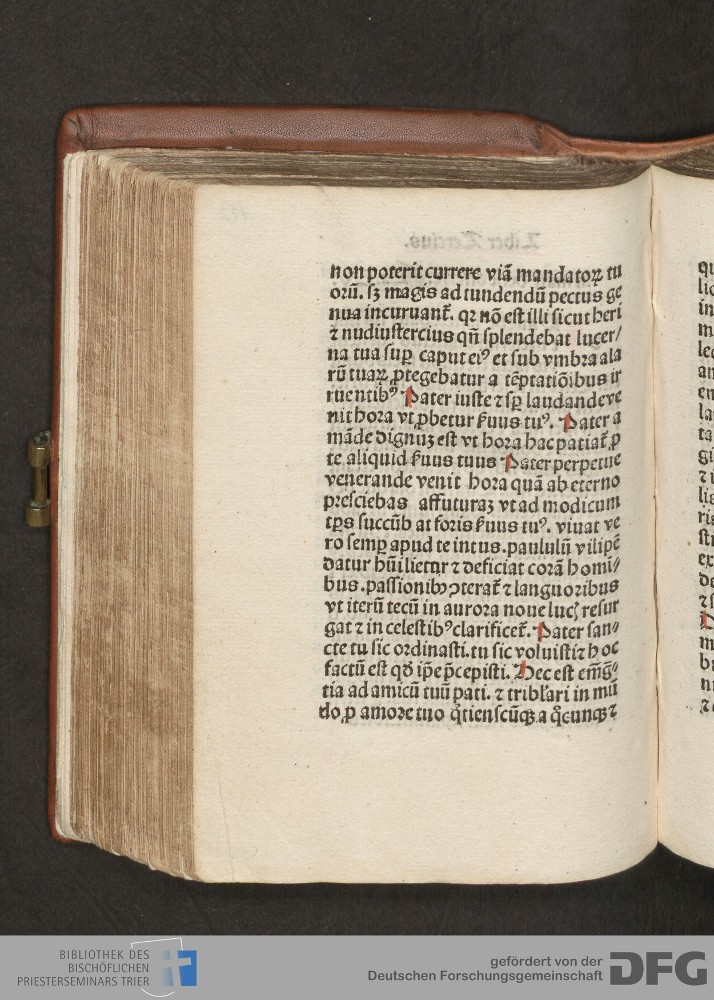 non poterit currere viā mandatoꝝ tu
oꝛū. sꝫ magis ad tundendū pectus ge
nua incuruant᷑. qꝛ nō est illi sicut heri
⁊ nudiustercius qn̄ splendebat lucer/
na tua suꝑ caput eiꝰ et sub vmbra ala
rū tuaꝝ ꝓtegebatur a tēptatiōibus ir
ruentibꝰ Pater iuste ⁊ sꝑ laudande ve
nit hora vt ꝓbetur ẜuus tuꝰ. Pater a
māde dignuꝫ est vt hora hac patiat᷑ ꝓ
te aliquid ẜuus tuus Pater perpetue
venerande venit hora quā ab eterno
presciebas affuturaꝫ vt ad modicum
tp̄s succūbat foris ẜuus tuꝰ. viuat ve
ro semꝑ apud te intus. paululū vilipē
datur hūilietur ⁊ deficiat coꝛā homī/
bus. passionibꝫ ꝯterat᷑ ⁊ languoribus
vt iterū tecū in auroꝛa noue luc̄ resur
gat ⁊ in celestibꝰ clarificet᷑. Pater san/
cte tu sic ordinasti. tu sic voluisti ⁊ hoc
factū est qď ip̄e p̄cepisti. Hec est em̄ ḡ/
tia ad amicū tuū pati. ⁊ tribl̓ari in mū
do ꝓ amoꝛe tuo q̇tienscūqꝫ a q̊cunqꝫ ⁊
BIBLIOTHEK DES
BISCHÖFLICHEN
PRIESTERSEMINARS TRIER
gefördert von der
Deutschen Forschungsgemeinschaft
DFG